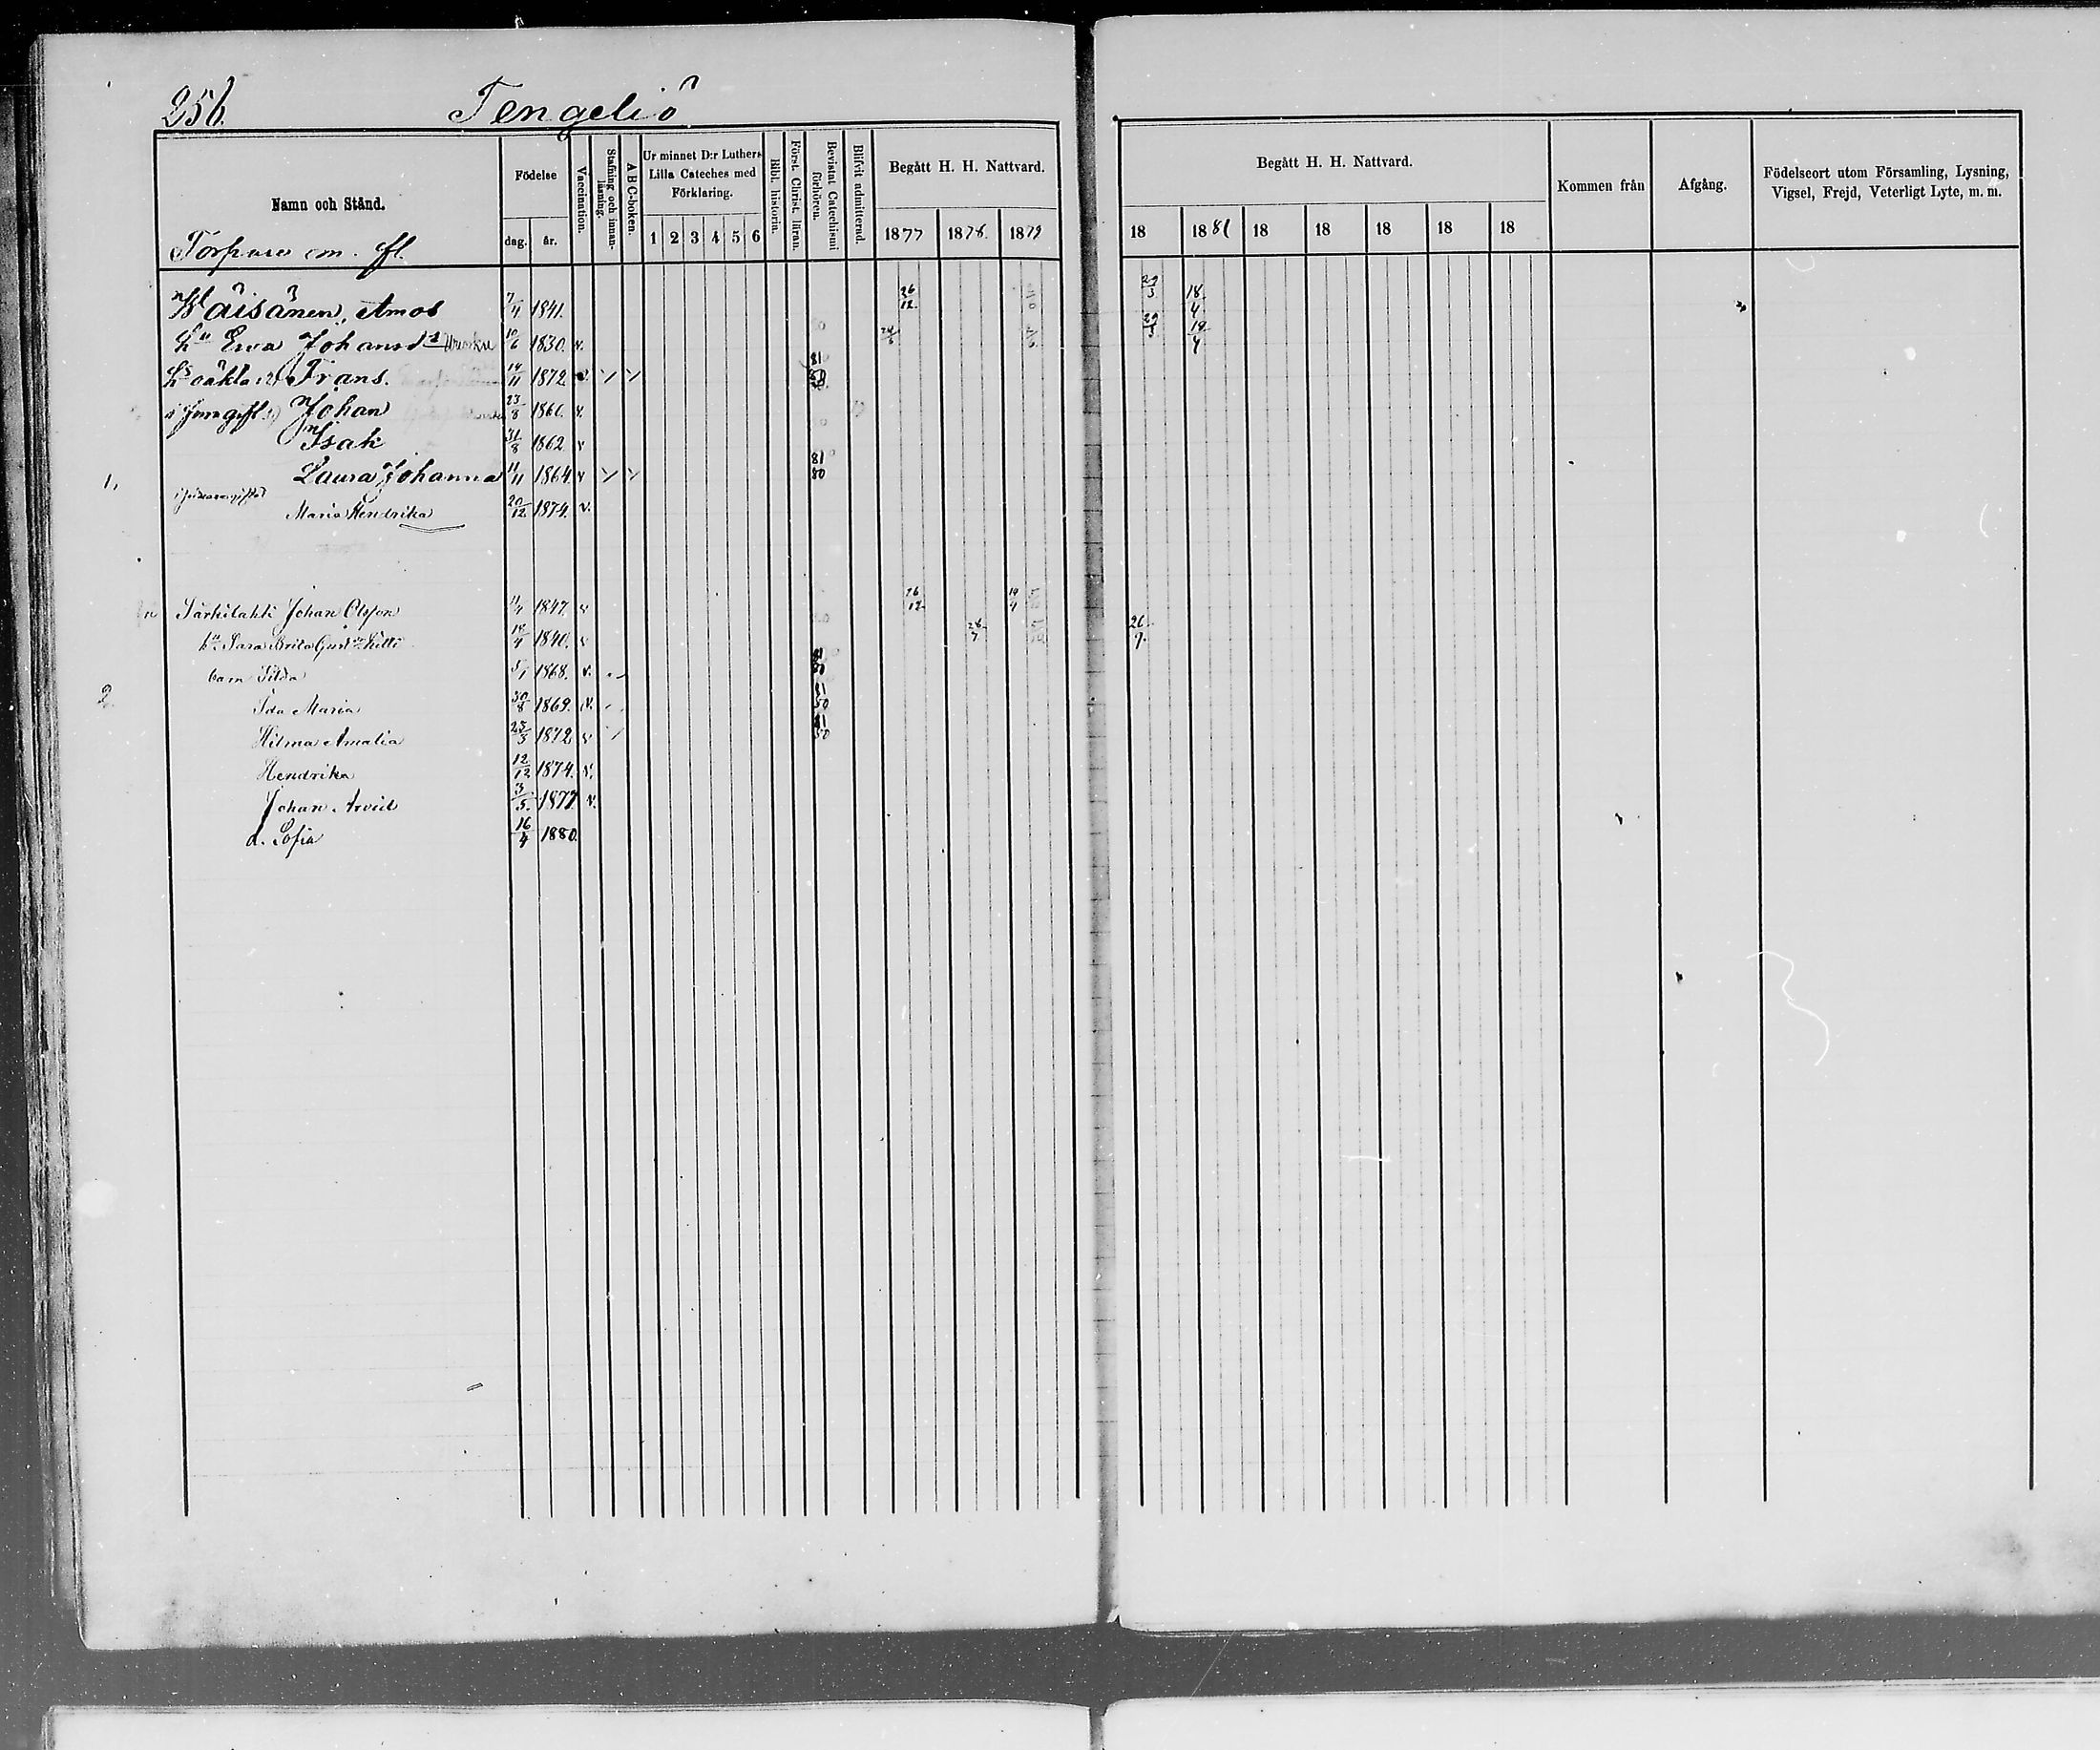 256. Tengeliö
Namn och Stånd.
Födelse
dag. år.
Vaccination.
Stafning och innan-läsning.
A B C-boken.
Ur minnet D:r Luthers Lilla Cateches med Förklaring.
1 2 3 4 5 6
Bibl. historia.
Först. Christ. läran.
Bevistat Catechismi förhören.
Blifvit admitterad.
Begått H. H. Nattvard.
1877 1878. 1879
Begått H. H. Nattvard.
18 1881 18 18 18 18 18
Kommen från
Afgång.
Födelseort utom Församling, Lysning, Vigsel, Frejd, Veterligt Lyte, m. m.
Torpare m. fl.
Wäisänen, Amos 7/4 1841. 26/12 29/3 18/4
h:u Eva Johansd:r 10/6 1830. v. 29/3 19/4
h:s oäkta: 2) Frans. 14/11 1872 81
Johan 23/8 1860. v.
Isak 31/8 1862 v
1, Laura Johanna 11/11 1864. v 81 80
Maria Hendrika 20/12 1874. v.
Särkilahti Johan Olsson 11/4 1847. v 26/12 19/4
h:u Sara Brita 14/4 1840. v 28/7 26/9.
2. barn Tilda 5/1 1868. v. 81 80
Ida Maria 30/8 1869. v. 81 80
Hilma Amalia 25/3 1872 v 81 80
Hendrika 12/12 1874. v.
Johan Arvid 3/5. 1877 v.
d. Sofia 16/4 1880.